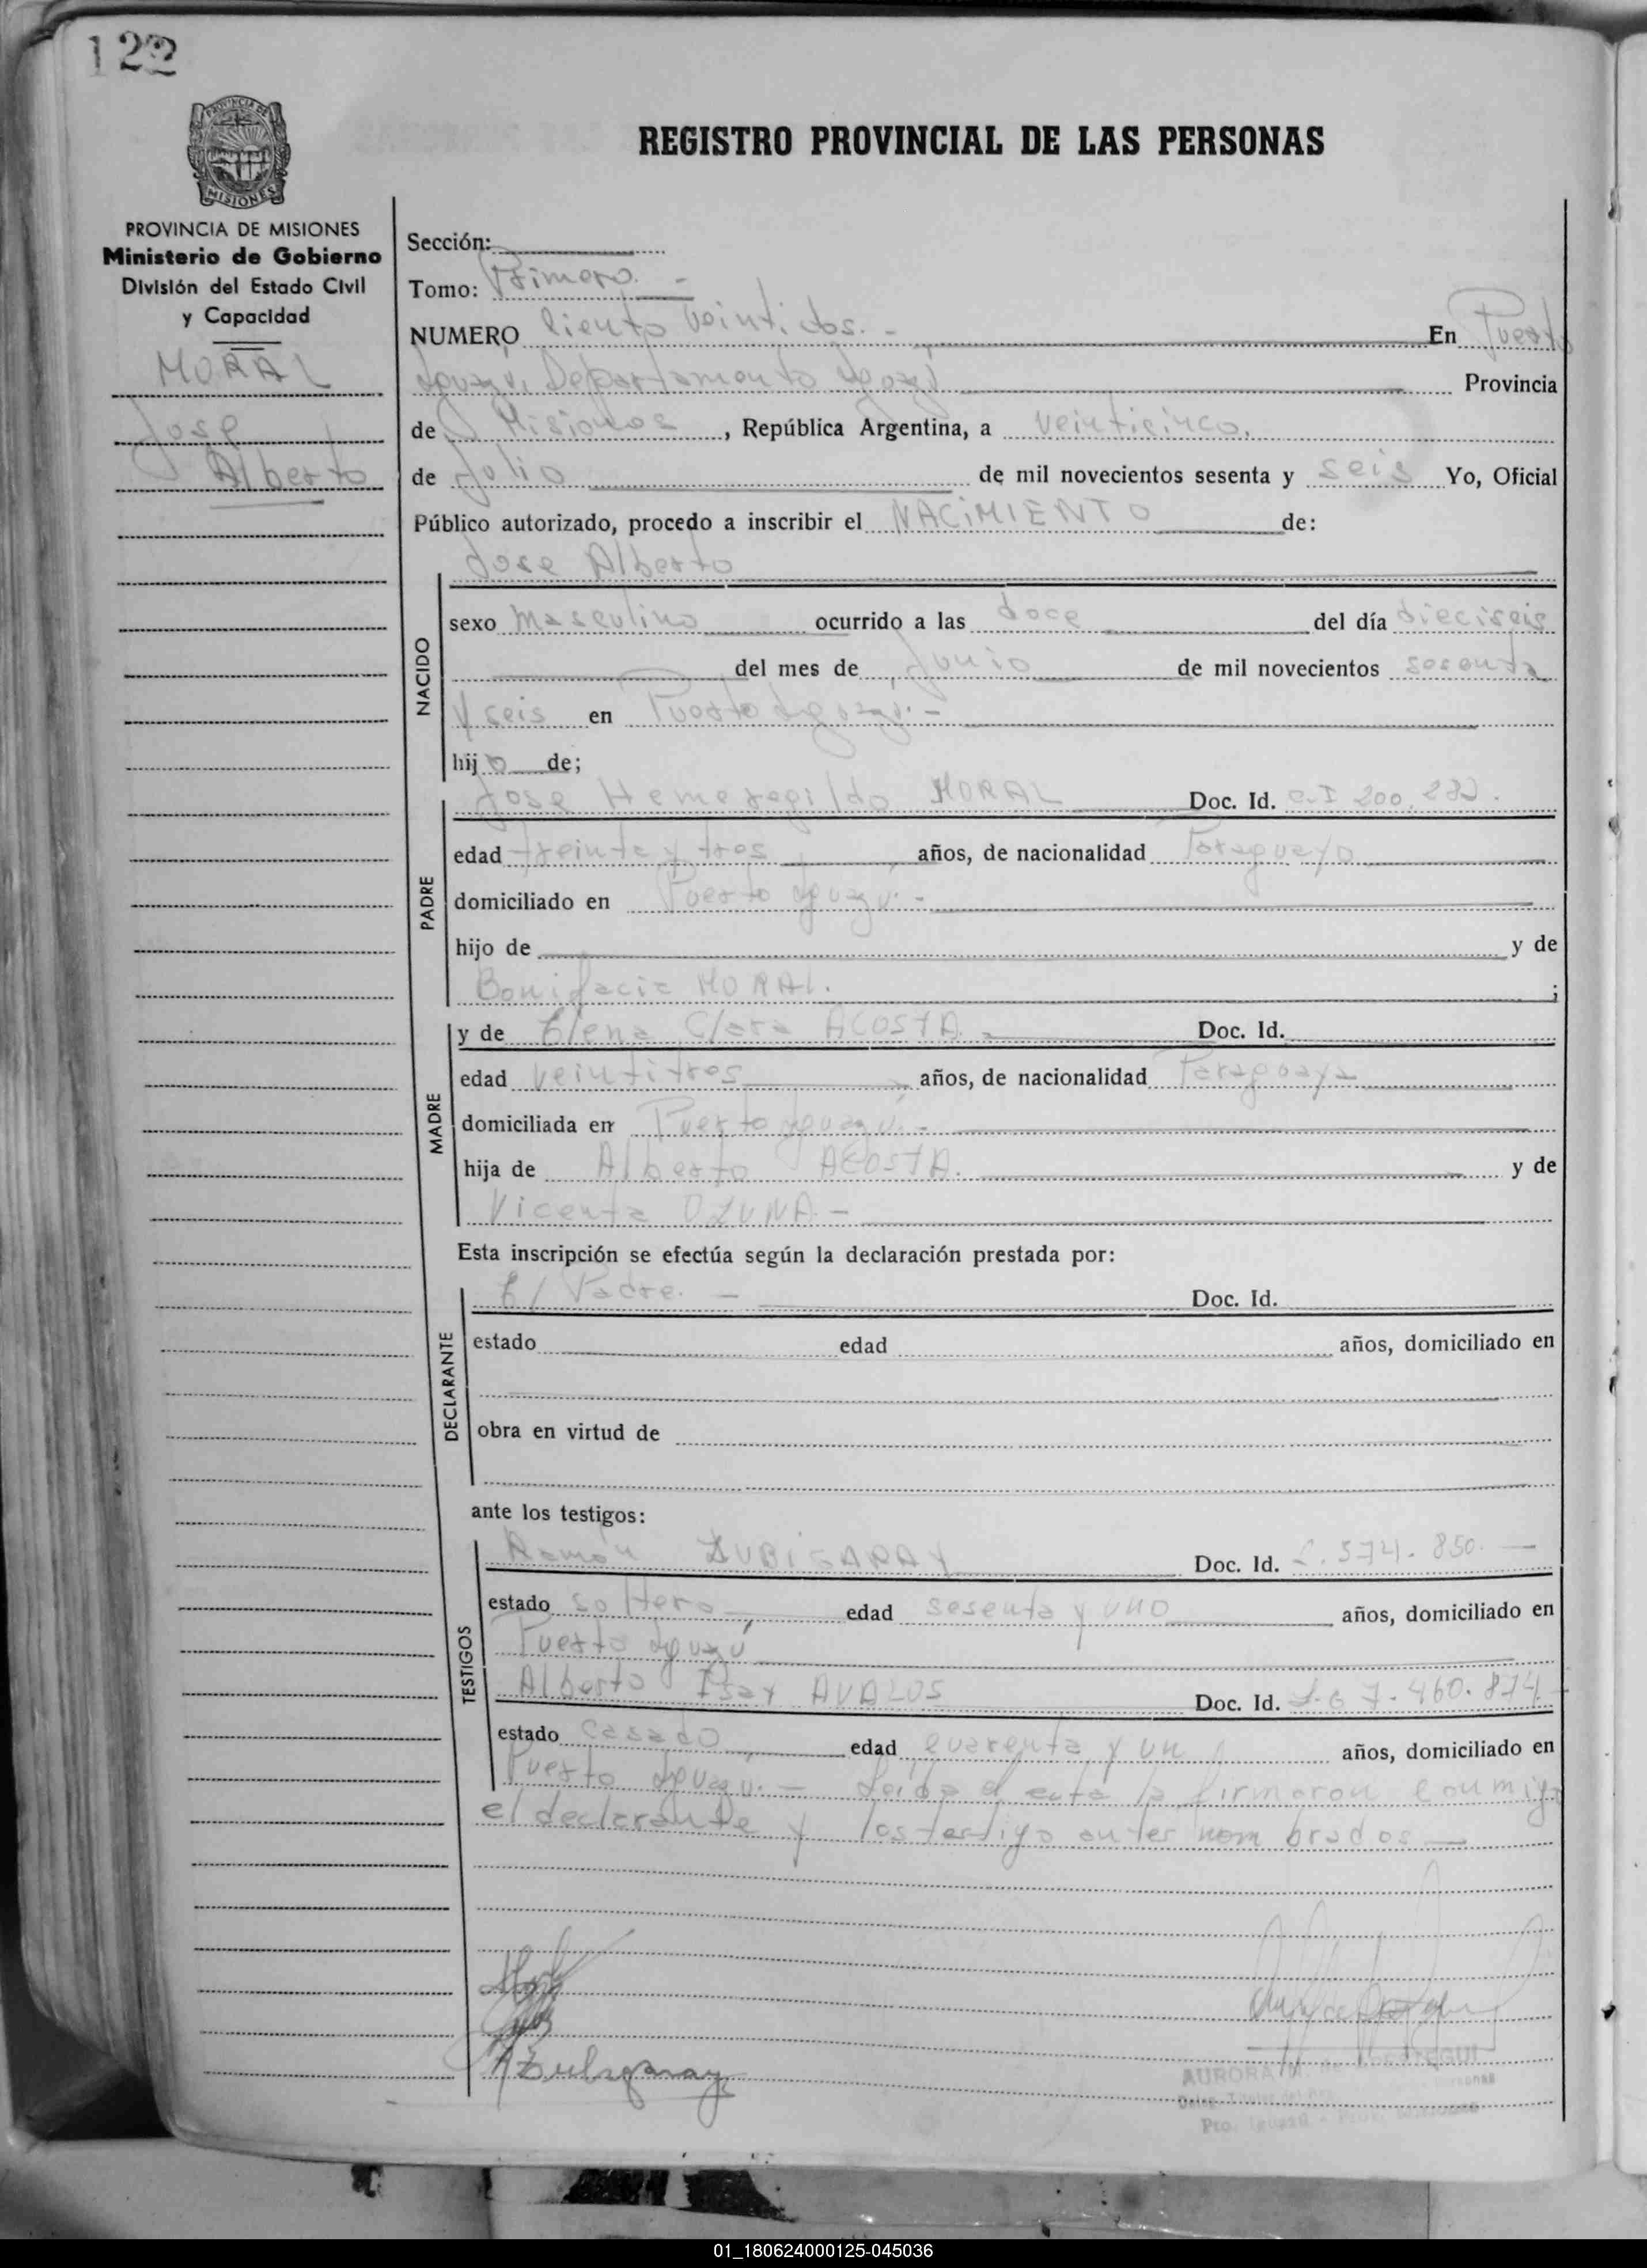 122
PROVINCIA DE MISIONES
REGISTRO PROVINCIAL DE LAS PERSONAS
PROVINCIA DE MISIONES
Ministerio de Gobierno
División del Estado Civil
y Capacidad
MORAL
Jose
Alberto
Sección:
Tomo: Primero. -
NUMERO Ciento veintidos. - En Puerto
Iguazú, Departamento Iguazú Provincia
de Misiones, República Argentina, a veinticinco.
de Julio de mil novecientos sesenta y seis Yo, Oficial
Público autorizado, procedo a inscribir el NACIMIENTO de:
Jose Alberto
NACIDO
sexo masculino ocurrido a las doce del día dieciseis
del mes de Junio de mil novecientos sesenta
y seis en Puerto Iguazú. -
hijo de;
PADRE
Jose Hemeregildo MORAL Doc. Id. C.I 200.
edad treinta y tres años, de nacionalidad Paraguayo
domiciliado en Puerto Iguazú. -
hijo de y de
Bonifacia MORAL. ;
MADRE
y de Elena Clara ACOSTA. - Doc. Id.
edad veintitres años, de nacionalidad Paraguaya
domiciliada en Puerto Iguazú. -
hija de Alberto ACOSTA. y de
Vicenta OZUNA -
Esta inscripción se efectúa según la declaración prestada por:
DECLARANTE
El Padre. - Doc. Id.
estado edad años, domiciliado en
obra en virtud de
ante los testigos:
TESTIGOS
Ramón ZUBIGARAY Doc. Id. 574.850. -
estado soltero, edad sesenta y uno años, domiciliado en
Puerto Iguazú
Alberto AVALOS Doc. Id. 7.460.874 -
estado casado, edad cuarenta y un años, domiciliado en
Puerto Iguazú. - Leida el acta la firmaron conmigo
el declarante y los testigo antes nombrados -
AURORA
Pto. Iguazú
01_180624000125-045036